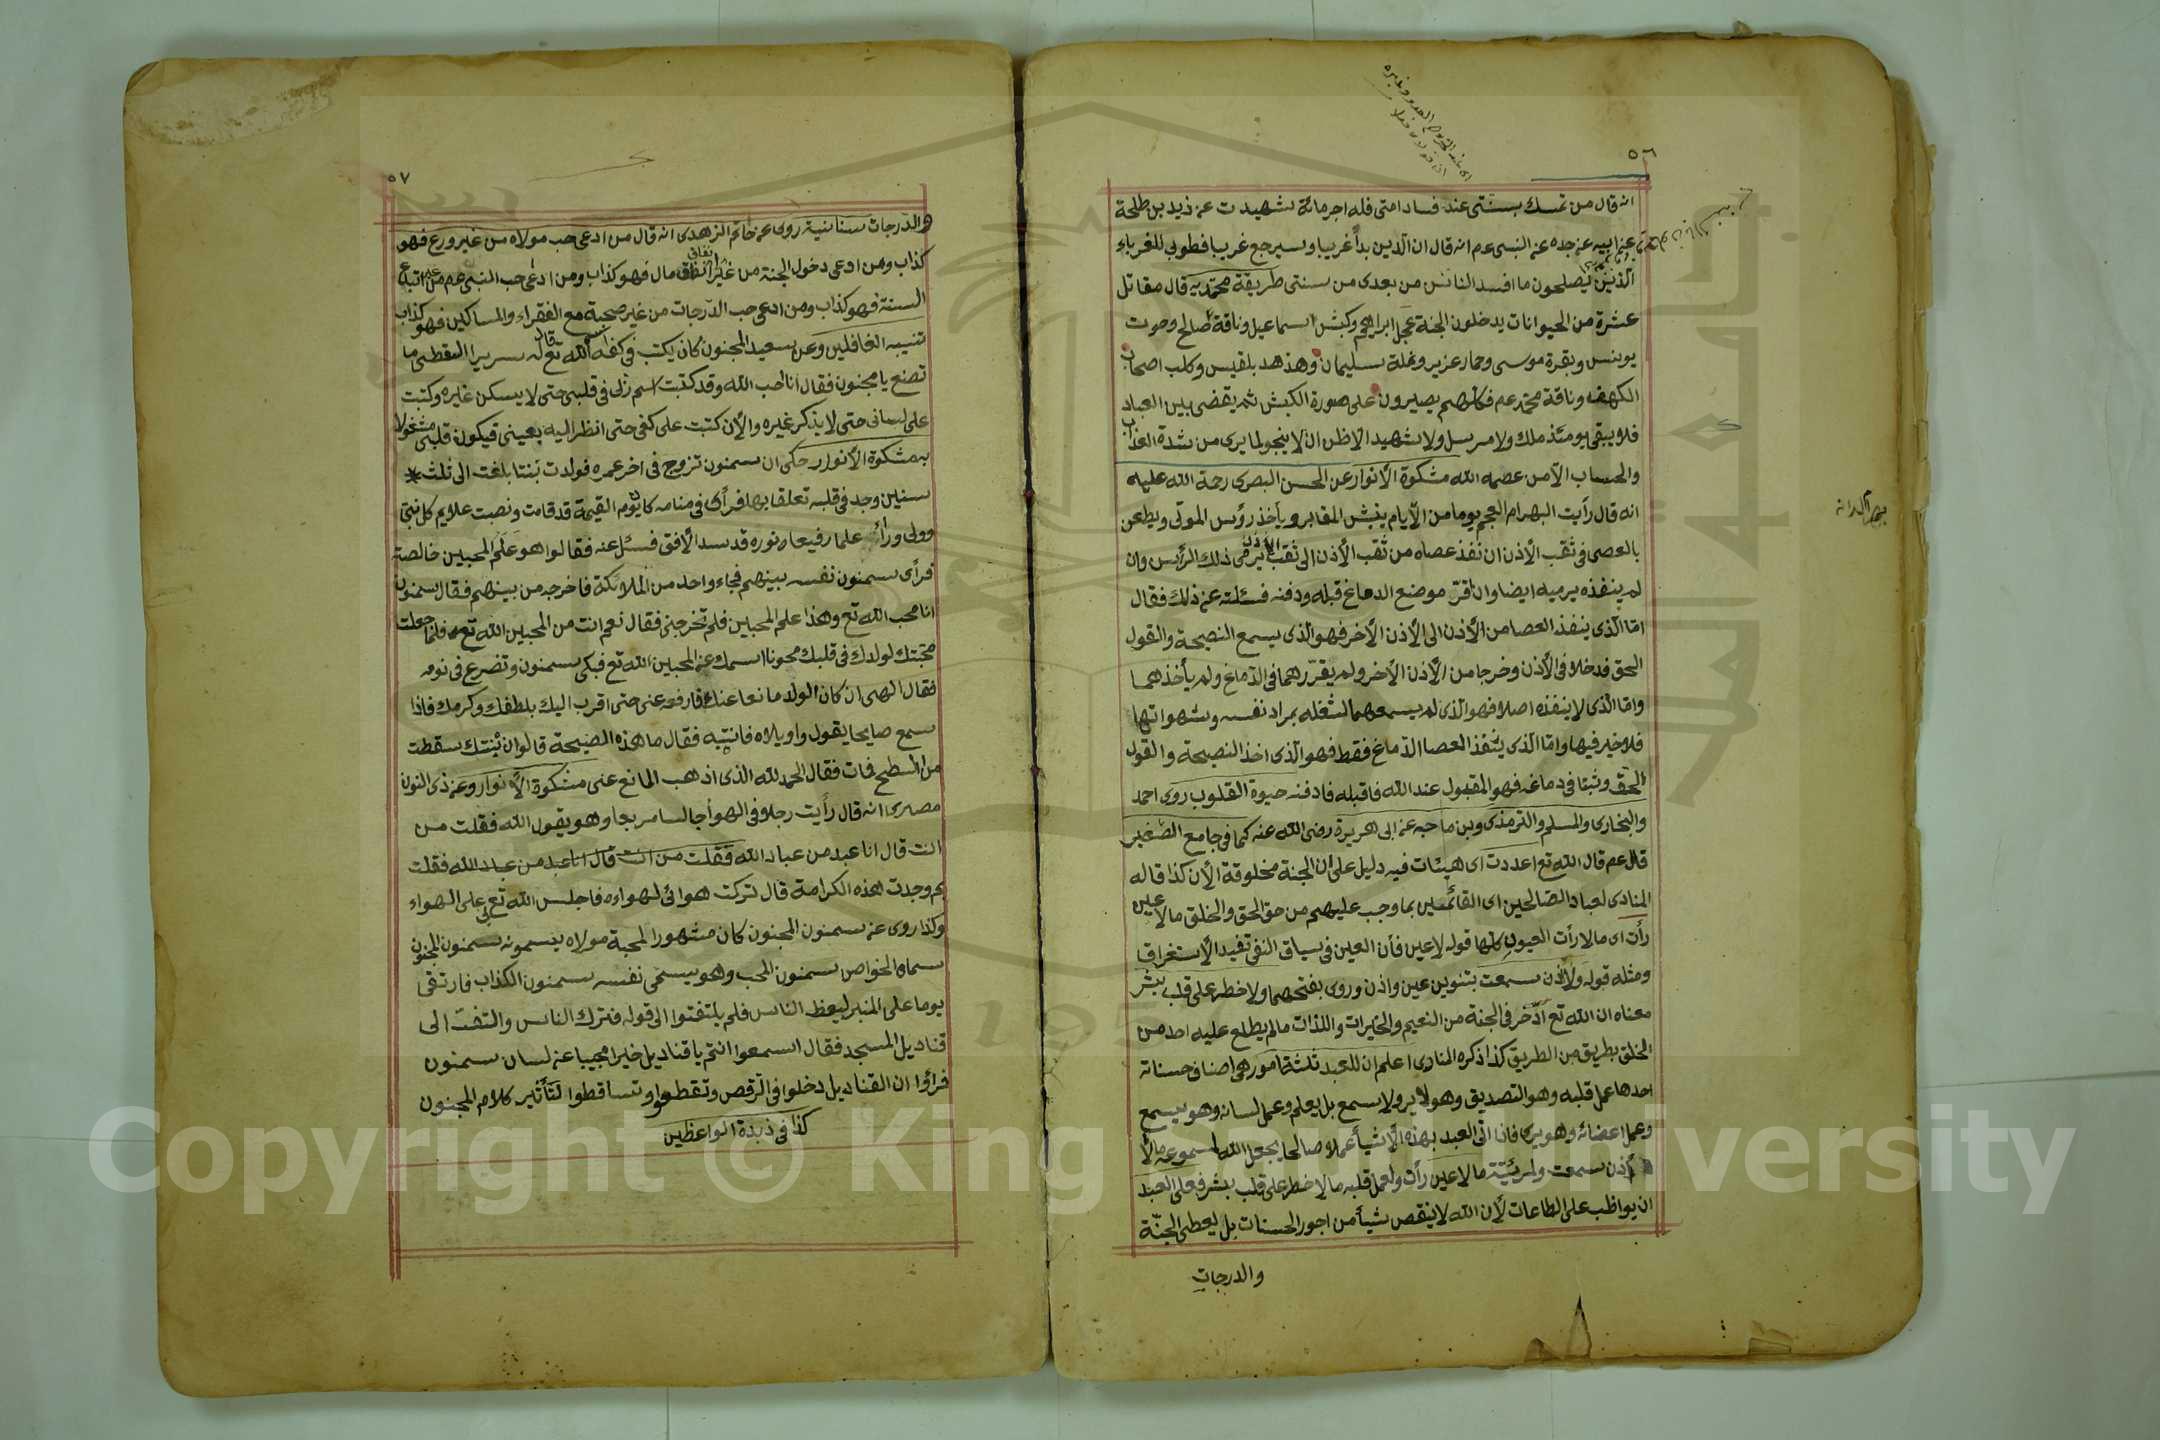 ٥٦
انه قال من تمسك بسنتى عند فساد امتى فله اجر مائة شهيد ت عن زيد بن طلحة
عن ابيه عن جده عن النبى عم انه قال ان الدين بدأ غريبا وسيرجع غريبا فطوبى للغرباء
الذين يصلحون ما افسد الناس من بعدى من سنتى طريقة محمديه قال مقاتل
عشرة من الحيوانات يدخلون الجنة عجل ابراهيم وكبش اسماعيل وناقة صالح وحوت
يونس وبقرة موسى وحمار عزير ونملة سليمان وهدهد بلقيس وكلب اصحاب
الكهف وناقة محمد عم فكلهم يصيرون على صورة الكبش ثم يقضى بين العباد
فلا يبقى يومئذ ملك ولا مرسل ولا شهيد الا ظن ان لا ينجو لما يرى من شدة العذاب
والحساب الا من عصمه الله مشكوة الأنوار عن الحسن البصرى رحمة الله عليه
انه قال رأيت البهرام العجم يوما من الأيام ينبش المقابر ويأخذ رؤس الموتى ويطعن
بالعصى فى ثقب الأذن ان نفذ عصاه من ثقب الأذن الى ثقب الأذن يرمى ذلك الرأس وان
لم ينفذه يرميه ايضا وان قرّ موضع الدماغ قبله ودفنه فسئلته عن ذلك فقال
امّا الّذى ينفذ العصا من الأذن الى الأذن الأخر فهو الّذى يسمع النصيحة والقول
الحق فدخلا فى الأذن وخرجا من الأذن الأخر ولم يقرّرهما فى الدماغ ولم يأخذهما
وامّا الّذى لا ينفذه اصلا فهو الّذى لم يسمعهما لشغله بمراد نفسه وشهواتها
فلا خير فيها وامّا الّذى ينفذ العصا الدّماغ فقط فهو الّذى اخذ النصيحة والقول
الحق وثبتا فى دماغه فهو المقبول عند الله فاقبله فادفنه حيوة القلوب روى احمد
والبخارى والمسلم والترمذى وبن ماجه عن ابى هريرة رضى الله عنه كما فى جامع الصّغير
قال عم قال الله تع اعددت اى هيئات فيه دليل على ان الجنة مخلوقة الأن كذا قاله
المنادى لعباد الصّالحين اى القائمين بما وجب عليهم من حق الحق والخلق ما لا عين
رأت اى ما لا رأت العيون كلها قوله لا عين فان العين فى سياق النفى تفيد الأستغراق
ومثله قوله ولا اذن سمعت بتنوين عين واذن وروى بفتحهما ولا خطر على قلب بشر
معناه ان الله تع ادّخر فى الجنة من النعيم والخيرات واللذات ما لم يطلع عليه احد من
الخلق بطريق من الطريق كذا ذكره المنادى اعلم ان للعبد ثلثة امور هى اصناف حسناته
احدها عمل قلبه وهو التصديق وهو لا ير ولا يسمع بل يعلم وعمل لسانه وهو يسمع
وعمل اعضائه وهو يرى فاذا اتى العبد بهذه الأشيأ عملا صالحا يجعل الله لمسموعه ما لا
أذن سمعت ولمرئيّته ما لا عين رأت ولعمل قلبه ما لا خطر على قلب بشر فعلى العبد
ان يواظب على الطاعات لأن الله لا ينقص شيأ من اجور الحسنات بل يعطى الجنّة
والدرجات
٥٧
والدّرجات سنانية روى عن حاتم الزهدى انه قال من ادعى حب مولاه من غير ورع فهو
كذاب ومن ادعى دخول الجنة من غير انفاق مال فهو كذاب ومن ادعى حب النبى عم من غير اتباع
السنة فهو كذاب ومن ادعى حب الدّرجات من غير صحبة مع الفقراء والمساكين فهو كذاب
تنبيه الغافلين وعن سعيد المجنون كان يكتب فى كفه اسم الله تع قال له سرير السقطى ما
تصنع يا مجنون فقال انا احب الله وقد كتبت اسم ربى فى قلبى حتى لا يسكن غيره وكتبت
على لسانى حتى لا يذكر غيره والأن كتبت على كفى حتى انظر اليه بعينى فيكون قلبى مشغولا
به مشكوة الأنوار حكى ان سمنون تزوج فى اخر عمره فولدت بنتا بلغت الى ثلث
سنين وجد فى قلبه تعلقا بها فرأى فى منامه كان يوم القيمة قد قامت ونصبت علايم كل نبى
وولى وراى علما رفيعا ونوره قد سد الأفق فسئل عنه فقالوا هو علم المحبين خالصة
فرأى سمنون نفسه بينهم فجاء واحد من الملائكة فاخرجه من بينهم فقال سمنون
انا محب الله تع وهذا علم المحبين فلم تخرجنى فقال نعم انت من المحبين الله تع فلما جعلت
محبّتك لولدك فى قلبك محونا اسمك عن المحبين الله تع فبكى سمنون وتضرع فى نومه
فقال الهى ان كان الولد مانعا عنك فارفعه عنى حتى اقرب اليك بلطفك وكرمك فاذا
سمع صايحا يقول واويلاه فانتبه فقال ما هذه الصيحة قالوا ان بنتك سقطت
من السطح فمات فقال الحمد لله الذى اذهب المانع عنى مشكوة الأنوار وعن ذى النون
مصرى انه قال رأيت رجلا فى الهوأ جالسا مربعا وهو يقول الله فقلت من
انت قال انا عبد من عباد الله فقلت من انت قال انا عبد من عباد الله فقلت
بم وجدت هذه الكرامة قال تركت هوائى لهواءه فاجلس الله تع لى على الهواء
وكذا روى عن سمنون المجنون كان مشهورا لمحبة مولاه يسمونه سمنون المجنون
سماه الخواص سمنون المحب وهو يسمى نفسه سمنون الكذاب فارتقى
يوما على المنبر ليعظ الناس فلم يلتفتوا الى قوله فترك الناس والتفت الى
قناديل المسجد فقال اسمعوا انتم يا قناديل خيرا مجيبا عن لسان سمنون
فرأوا ان القناديل دخلوا فى الرقص وتقطعوا وتساقطوا لتأثير كلام المجنون
كذا فى زبدة الواعظين
Copyright © King Saud University